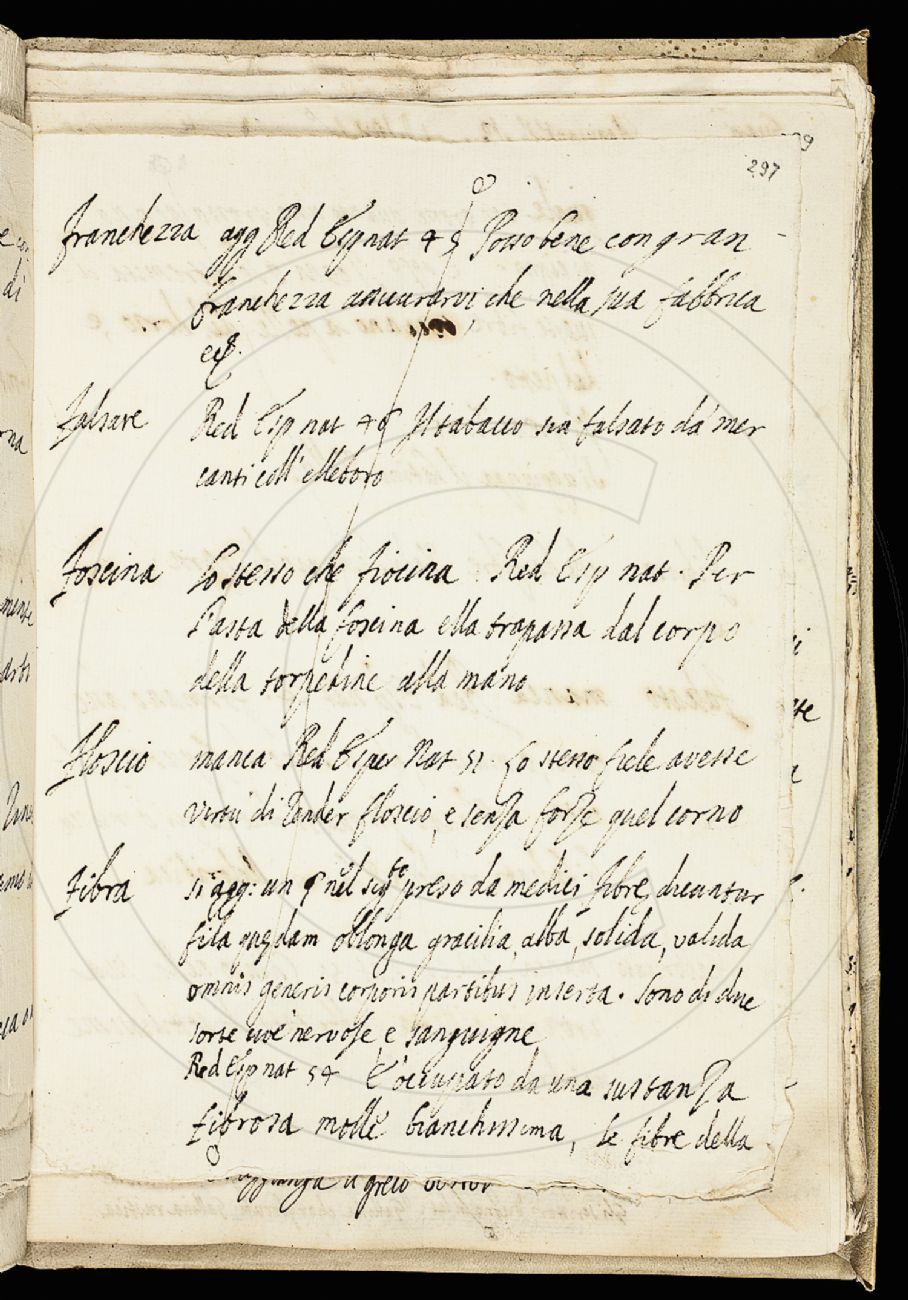 297
franchezza agg Red Esp nat 45 Posso bene con gran
franchezza assicurarvi, che nella sua fabbrica
ec.
falsare Red Esp nat 46 Il tabacco sia falsato da' mer
canti coll' elleboro
foscina Lo stesso che fiocina. Red Esp nat. Per
l'asta della foscina ella trapassa dal corpo
della torpedine alla mano
floscio manca Red Esper Nat 51. Lo stesso fiele avesse
virtù di render floscio, e senza forze quel corno
fibra si agg: un § nel sigte preso da medici fibre dicuntur
fila quędam oblonga gracilia, alba, solida, valida
omnis generis corporis partibus inserta. Sono di due
sorte cioè nervose, e sanguigne
Red Esp nat 54 È occupato da una sustanza
fibrosa molle bianchissima, Le fibre della